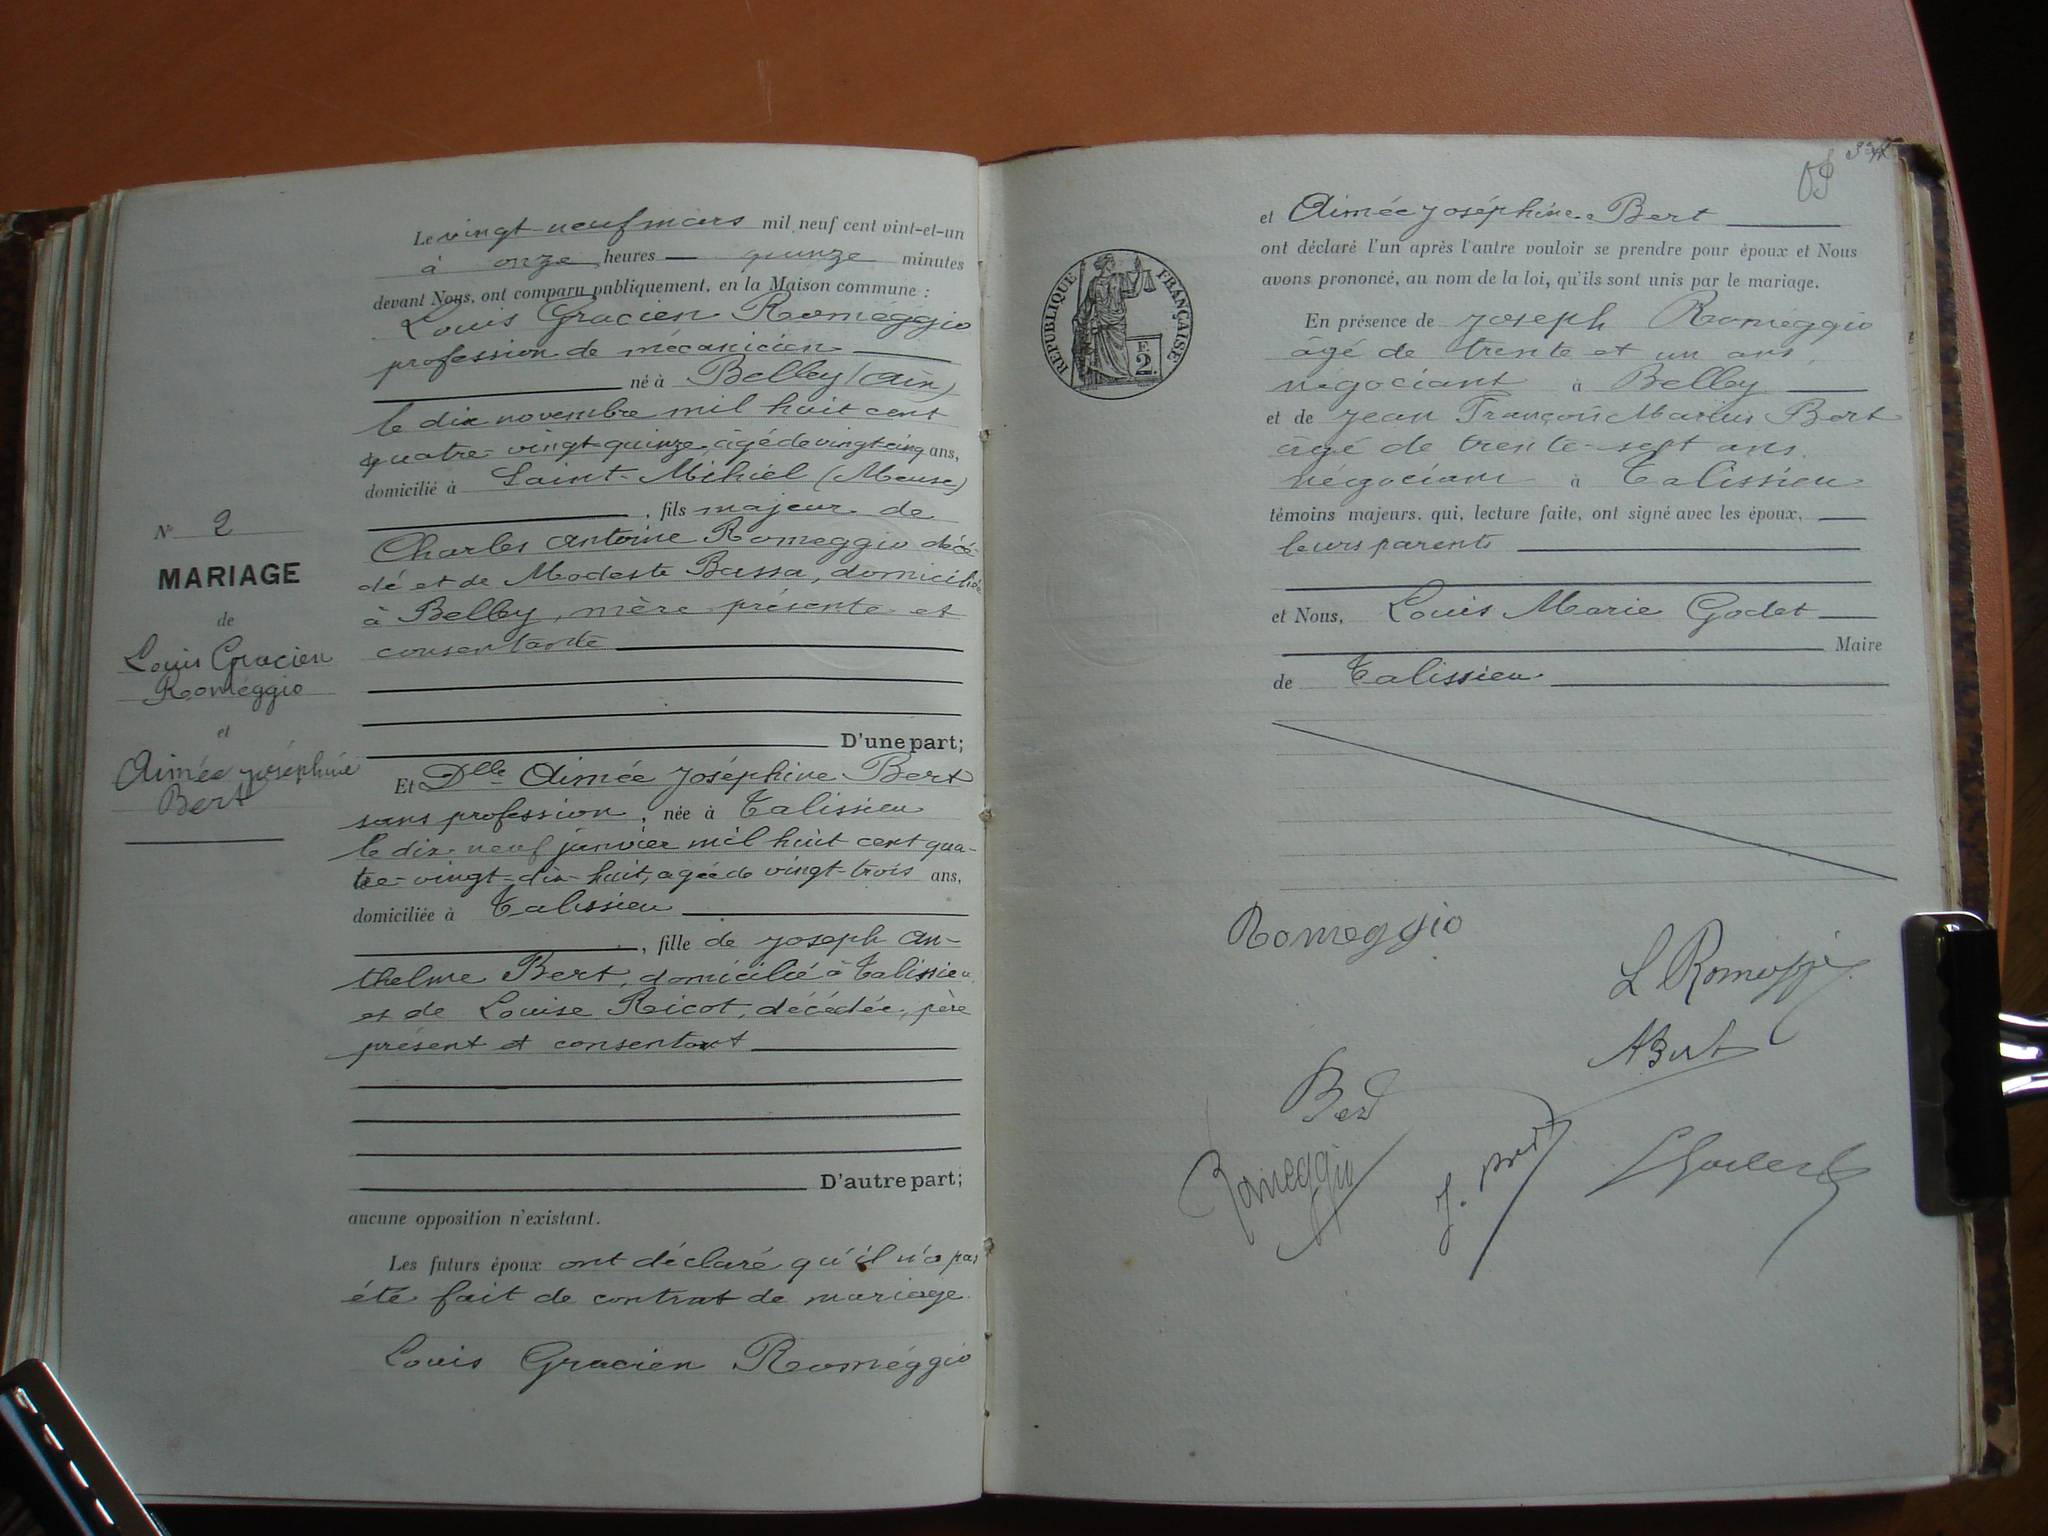 N° 2
MARIAGE
de
Louis Gracien
Roméggio
et
Aimée Joséphine
Bert
Le vingt-neuf mars mil neuf cent vint-et-un
à onze heures quinze minutes
devant Nous, ont comparu publiquement, en la Maison commune :
Louis Gracien Roméggio
profession de mécanicien
né à Belley (Ain)
le dix novembre mil huit cent
quatre-vingt-quinze, âgé de vingt-cinq ans,
domicilié à Saint-Mihiel (Meuse)
, fils majeur de
Charles Antoine Romeggio décé-
dé et de Modeste Bassa, domiciliée
à Belley, mère présente et
consentante
D'une part;
Et Dlle Aimée Joséphine Bert
sans profession, née à Talissieu
le dix-neuf janvier mil huit cent qua-
tre-vingt-dix-huit, agée de vingt-trois ans,
domiciliée à Talissieu
, fille de Joseph An-
thelme Bert, domicilié à Talissieu
et de Louise Ricot, décédée, père
présent et consentant
D'autre part;
aucune opposition n'existant.
Les futurs époux ont déclaré qu'il n'a pas
été fait de contrat de mariage.
Louis Gracien Roméggio
et Aimée Joséphine Bert
ont déclaré l'un après l'antre vouloir se prendre pour époux et Nous
avons prononcé, au nom de la loi, qu'ils sont unis par le mariage.
RÉPUBLIQUE FRANÇAISE
F.
2.
En présence de Joseph Roméggio
âgé de trente et un ans,
négociant à Belley
et de Jean François Marius Bert
âgé de trente-sept ans.
négociant à Talissieu
témoins majeurs, qui, lecture faite, ont signé avec les époux,
leurs parents
et Nous, Louis Marie Godet
Maire
de Talissieu
Romeggio
L Roméggio
A Bert
Bert
Romeggio
J. Bert